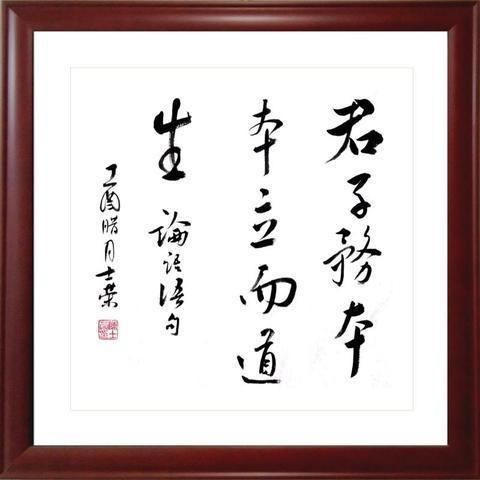 君子務本
本立而道
生
論語語句
丁酉腊月士荣